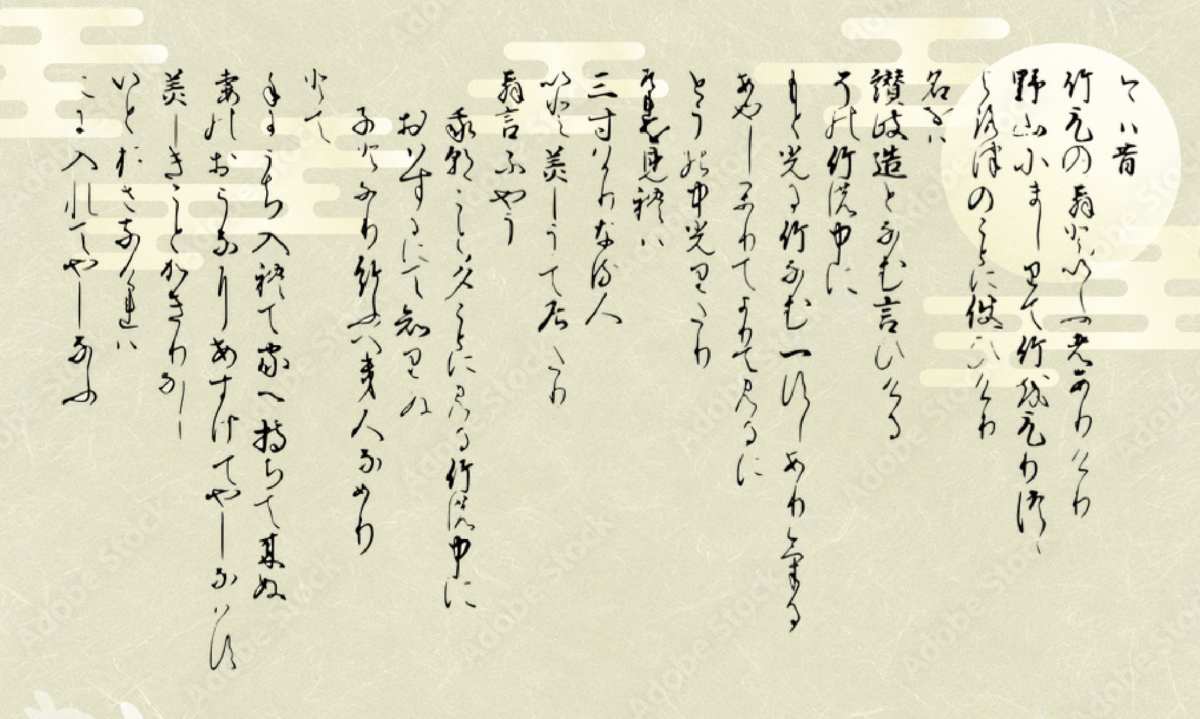 今は昔
竹取の翁といふ者ありけり
野山にまじりて竹を取りつつ
よろづのことに使ひけり
名をば
讃岐造となむ言ひける
その竹の中に
もと光る竹なむ一すぢありける
あやしがりてよりて見るに
とうの中光りたり
それを見れば
三寸ばかりなる人
いと美しうてゐたり
翁言ふやう
我朝ごと夕ごとに見る竹の中に
おはするにて知りぬ
子となり給ふべき人なめり
とて
手にうち入れて家へ持ちて来ぬ
妻のおうなにあづけてやしなはす
美しきことかぎりなし
いとをさなければ
こに入れてやしなふ
Adobe Stock